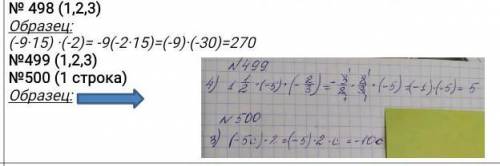 № 498 (1,2,3)
Образец:
(-9·15) ·(-2)= -9(-2·15)=(-9)·(-30)=270
№499 (1,2,3)
№500 (1 строка)
Образец:
№499
4) 1 1/2 · (-5) · (-2/3) = -3/2 · (-2/3) · (-5) = (-1)·(-5) = 5
№500
3) (-5c)·2 = (-5)·2·c = -10c